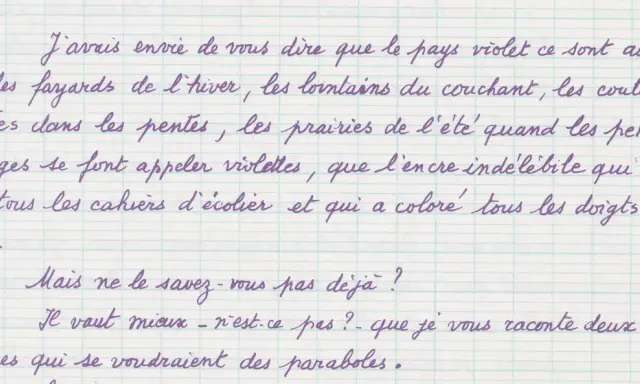 J'avais envie de vous dire que le pays violet ce sont as
les fayards de l'hiver, les lointains du couchant, les coul
es dans les pentes, les prairies de l'été quand les pe
ges se font appeler violettes, que l'encre indélébile qui
tous les cahiers d'écolier et qui a coloré tous les doigts
.
Mais ne le savez-vous pas déjà ?
Il vaut mieux - n'est-ce pas ? - que je vous raconte deux
es qui se voudraient des paraboles.